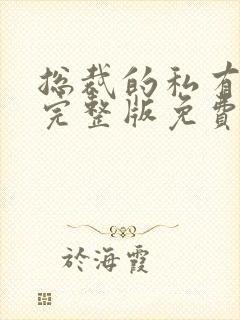 总裁的私有
完整版免費
於海霞